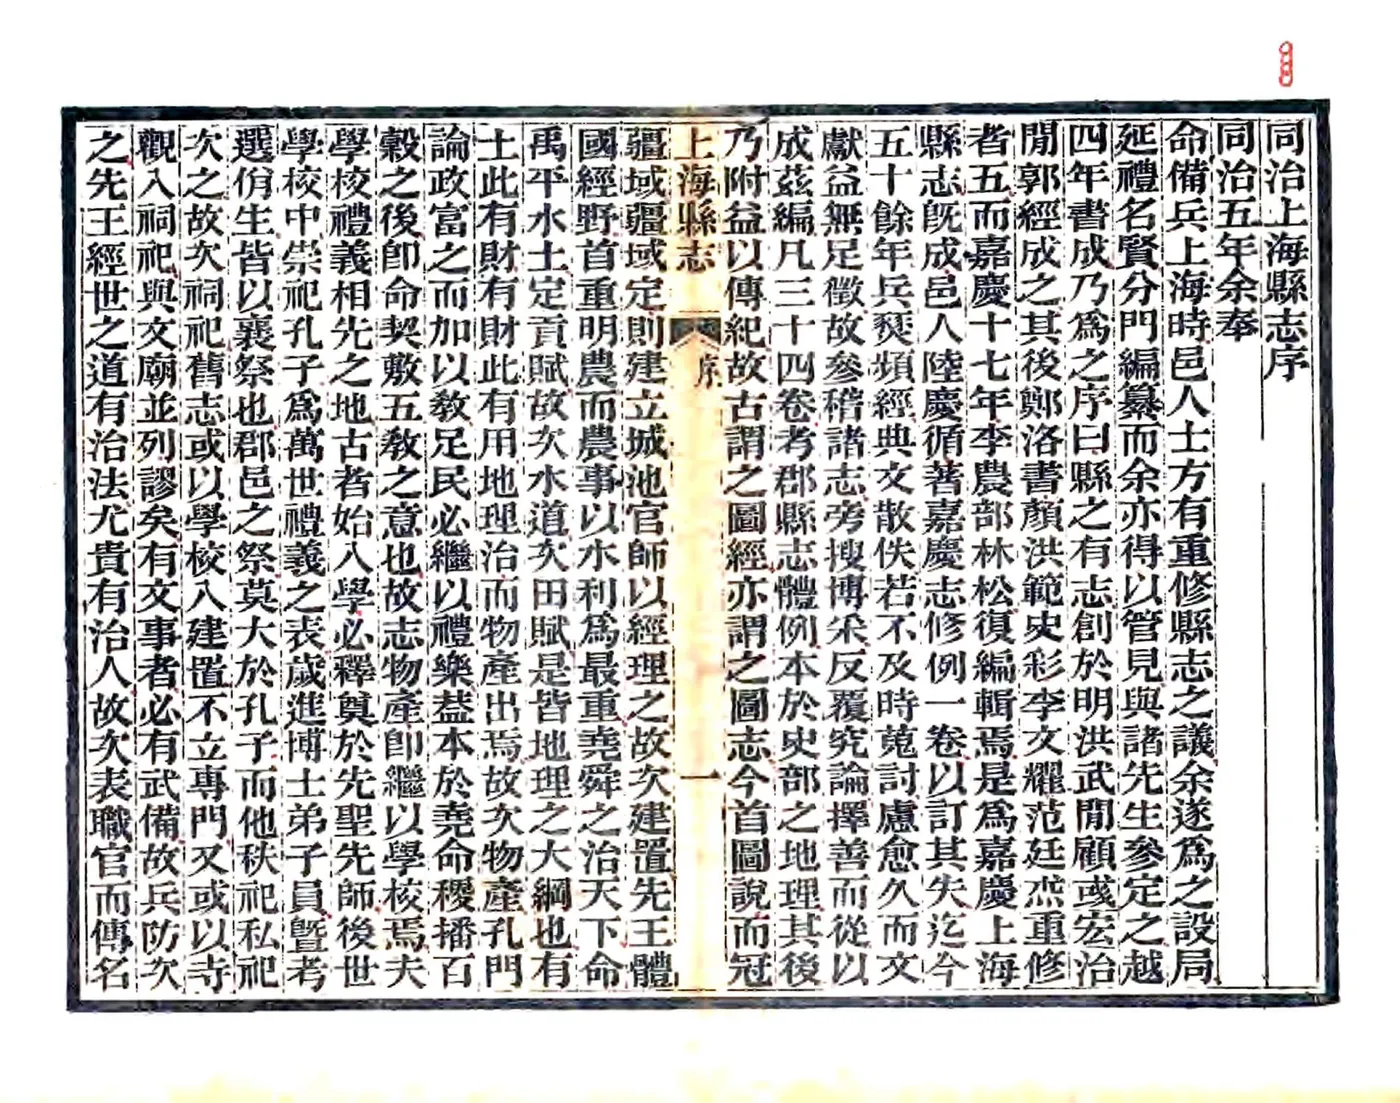 同治上海縣志序
同治五年余奉
命備兵上海時邑人士方有重修縣志之議余遂爲之設局
延禮名賢分門編纂而余亦得以管見與諸先生參定之越
四年書成乃爲之序曰縣之有志創於明洪武閒顧彧宏治
閒郭經成之其後鄭洛書顏洪範史彩李文耀范廷杰重修
者五而嘉慶十七年李農部林松復編輯焉是爲嘉慶上海
縣志旣成邑人陸慶循著嘉慶志修例一卷以訂其失迄今
五十餘年兵燹頻經典文散佚若不及時蒐討慮愈久而文
獻益無足徵故參稽諸志旁搜博采反覆究論擇善而從以
成茲編凡三十四卷考郡縣志體例本於史部之地理其後
乃附益以傳紀故古謂之圖經亦謂之圖志今首圖說而冠
上海縣志 序 一
疆域疆域定則建立城池官師以經理之故次建置先王體
國經野首重明農而農事以水利爲最重堯舜之治天下命
禹平水土定貢賦故次水道次田賦是皆地理之大綱也有
土此有財有財此有用地理治而物產出焉故次物產孔門
論政富之而加以敎足民必繼以禮樂葢本於堯命稷播百
穀之後卽命契敷五敎之意也故志物產卽繼以學校焉夫
學校禮義相先之地古者始入學必釋奠於先聖先師後世
學校中崇祀孔子爲萬世禮義之表歲進博士弟子員曁考
選佾生皆以襄祭也郡邑之祭莫大於孔子而他秩祀私祀
次之故次祠祀舊志或以學校入建置不立專門又或以寺
觀入祠祀與文廟並列謬矣有文事者必有武備故兵防次
之先王經世之道有治法尤貴有治人故次表職官而傳名